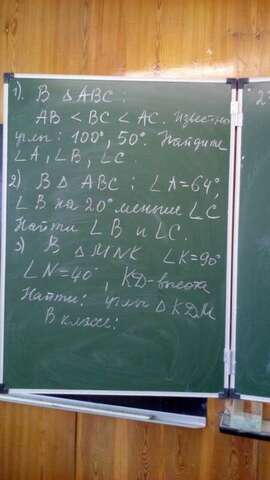 1). В △ ABC :
AB < BC < AC. Известны
углы: 100°, 50°. Найдите
∠A, ∠B, ∠C.
2) В △ ABC : ∠A=64°,
∠B на 20° меньше ∠C
Найти ∠B и ∠C.
3) В △ MNK ∠K=90°
∠N=40°, KD-высота
Найти: углы △ KDM
В классе:
2